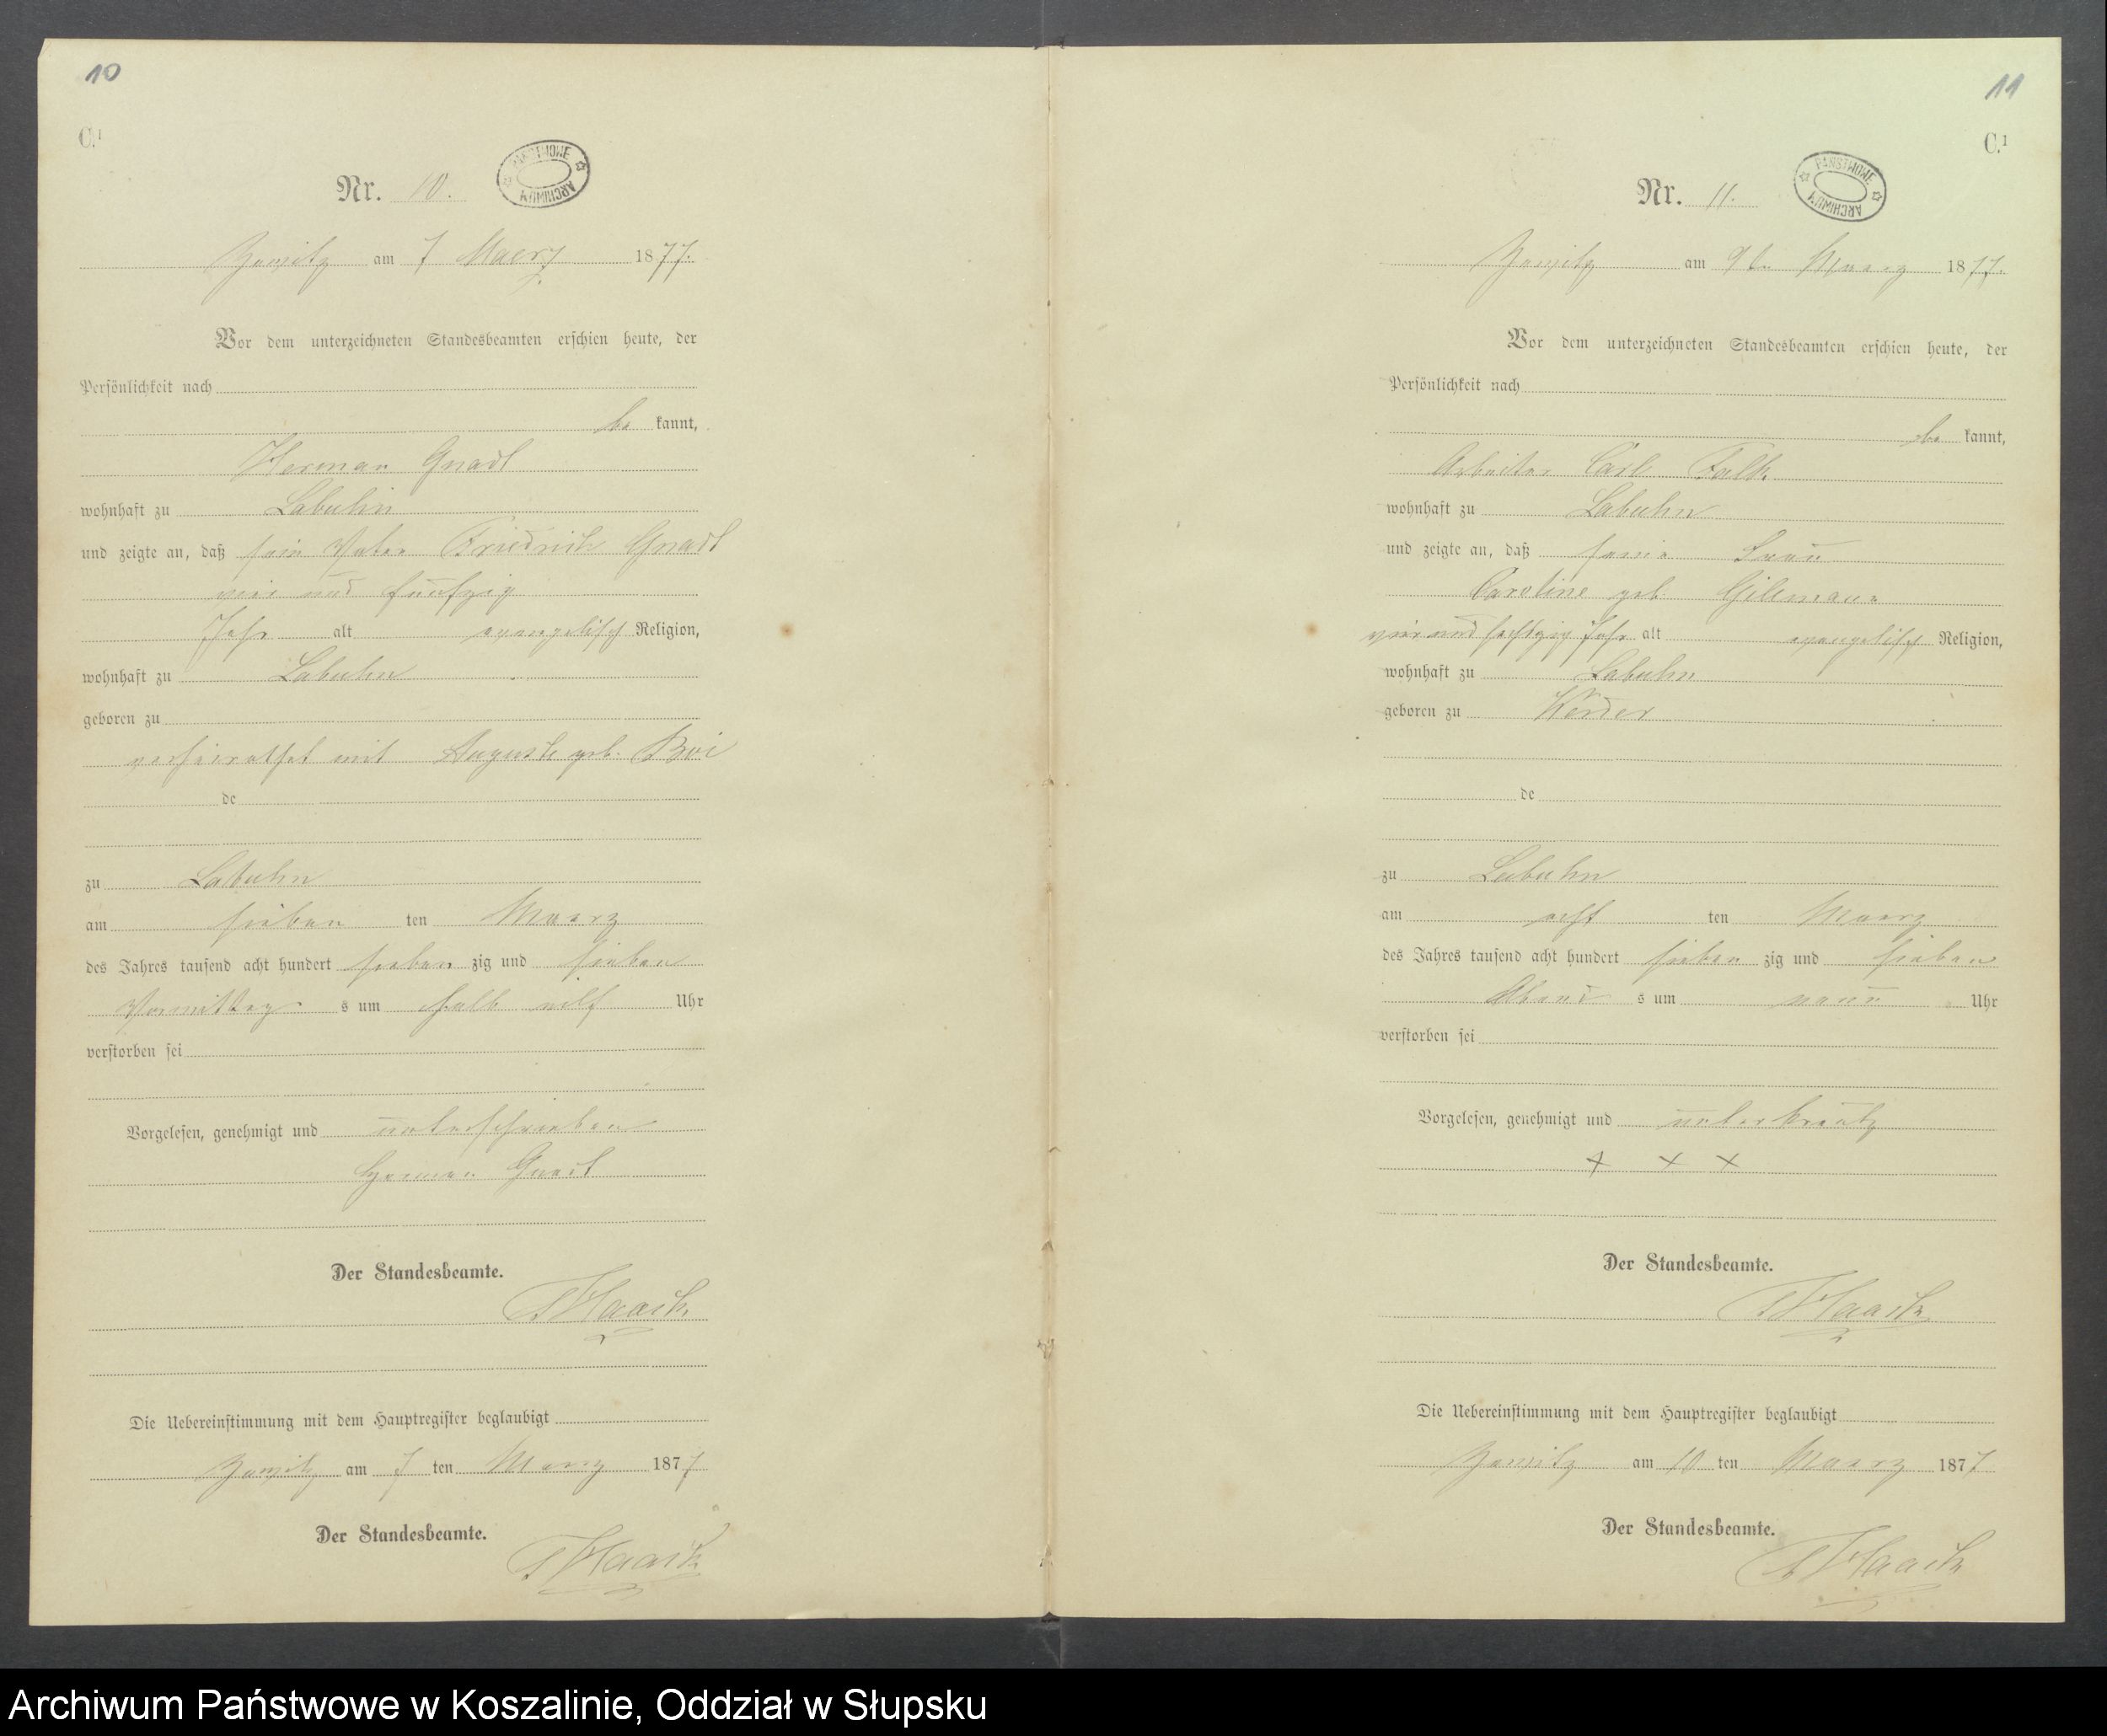 10
C.¹
PAŃSTWOWE ARCHIWUM
Nr. 10.
am 7 Maerz 1877.
Vor dem unterzeichneten Standesbeamten erschien heute, der
Persönlichkeit nach
be kannt,
Herman Gnadt
wohnhaft zu Labuhn
und zeigte an, daß sein Vater Friedrich Gnadt
vier und fünfzig
Jahr alt evangelisch Religion,
wohnhaft zu Labuhn
geboren zu
verheirathet mit Auguste geb.
de
zu Labuhn
am sieben ten Maerz
des Jahres tausend acht hundert sieben zig und sieben
Vormittag s um halb elf Uhr
verstorben sei
Vorgelesen, genehmigt und unterschrieben
Herman Gnadt
Der Standesbeamte.
Haack
Die Uebereinstimmung mit dem Hauptregister beglaubigt
am 7 ten Maerz 1877
Der Standesbeamte.
Haack
11
C.¹
PAŃSTWOWE ARCHIWUM
Nr. 11.
am 9ten Maerz 1877.
Vor dem unterzeichneten Standesbeamten erschien heute, der
Persönlichkeit nach
be kannt,
Arbeiter Carl Falk
wohnhaft zu Labuhn
und zeigte an, daß seine Frau
Caroline geb.
vier und sechszig Jahr alt evangelisch Religion,
wohnhaft zu Labuhn
geboren zu Werder
de
zu Labuhn
am acht ten Maerz
des Jahres tausend acht hundert sieben zig und sieben
Abend s um neun Uhr
verstorben sei
Vorgelesen, genehmigt und unterkreutz
x x x
Der Standesbeamte.
Haack
Die Uebereinstimmung mit dem Hauptregister beglaubigt
am 10 ten Maerz 1877
Der Standesbeamte.
Haack
Archiwum Państwowe w Koszalinie, Oddział w Słupsku